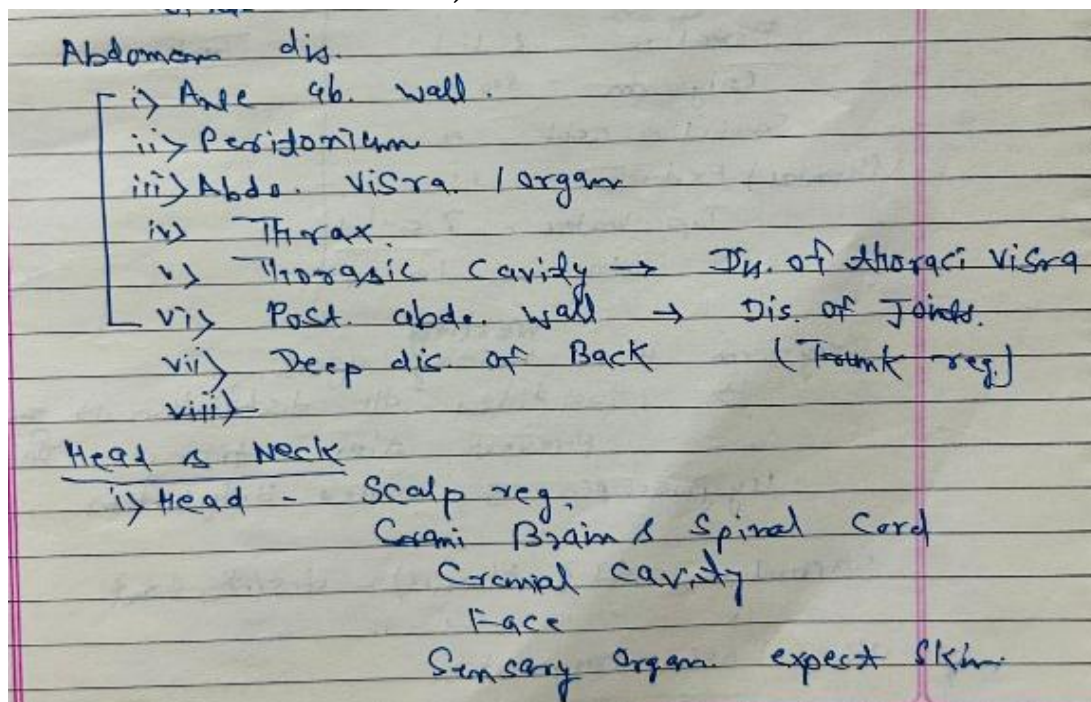 Abdomen dis.
i) Ante ab. wall.
ii) Peridonium
iii) Abdo. Visra. / organ
iv) Thorax.
v) Thorasic Cavity → Dis. of thoraci Visra
vi) Post. abdo. wall → Dis. of Joints.
vii) Deep dic. of Back (Trunk reg.)
viii)
Head & Neck
i) Head - Scalp reg.
Brain & Spinal Cord
Cranial Cavity
Face
Sensary Organ. expect Skin.